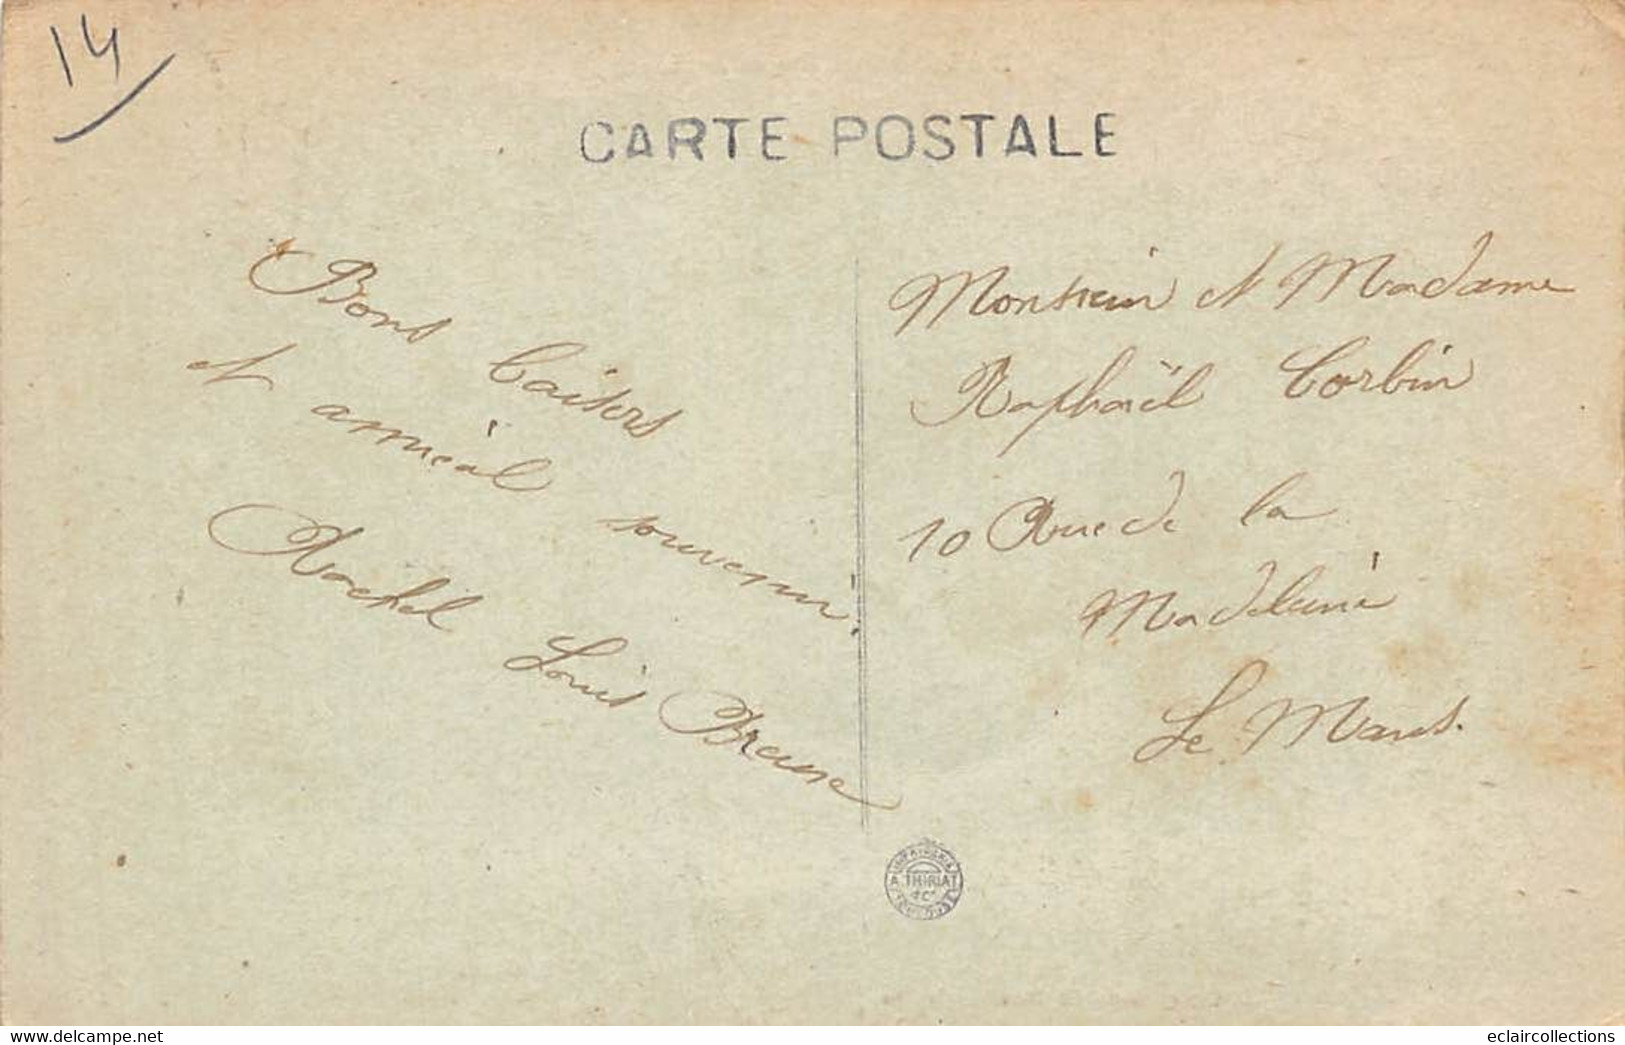 14
CARTE POSTALE
Bons baisers
et amical souvenir.
Rachel Louis Breune
Monsieur et Madame
Raphaël Corbin
10 Rue de la
Madeleine
Le Mans.
IMPRIMERIE
A. THIRIAT
& Cie
TOULOUSE
www.delcampe.net
eclaircollections